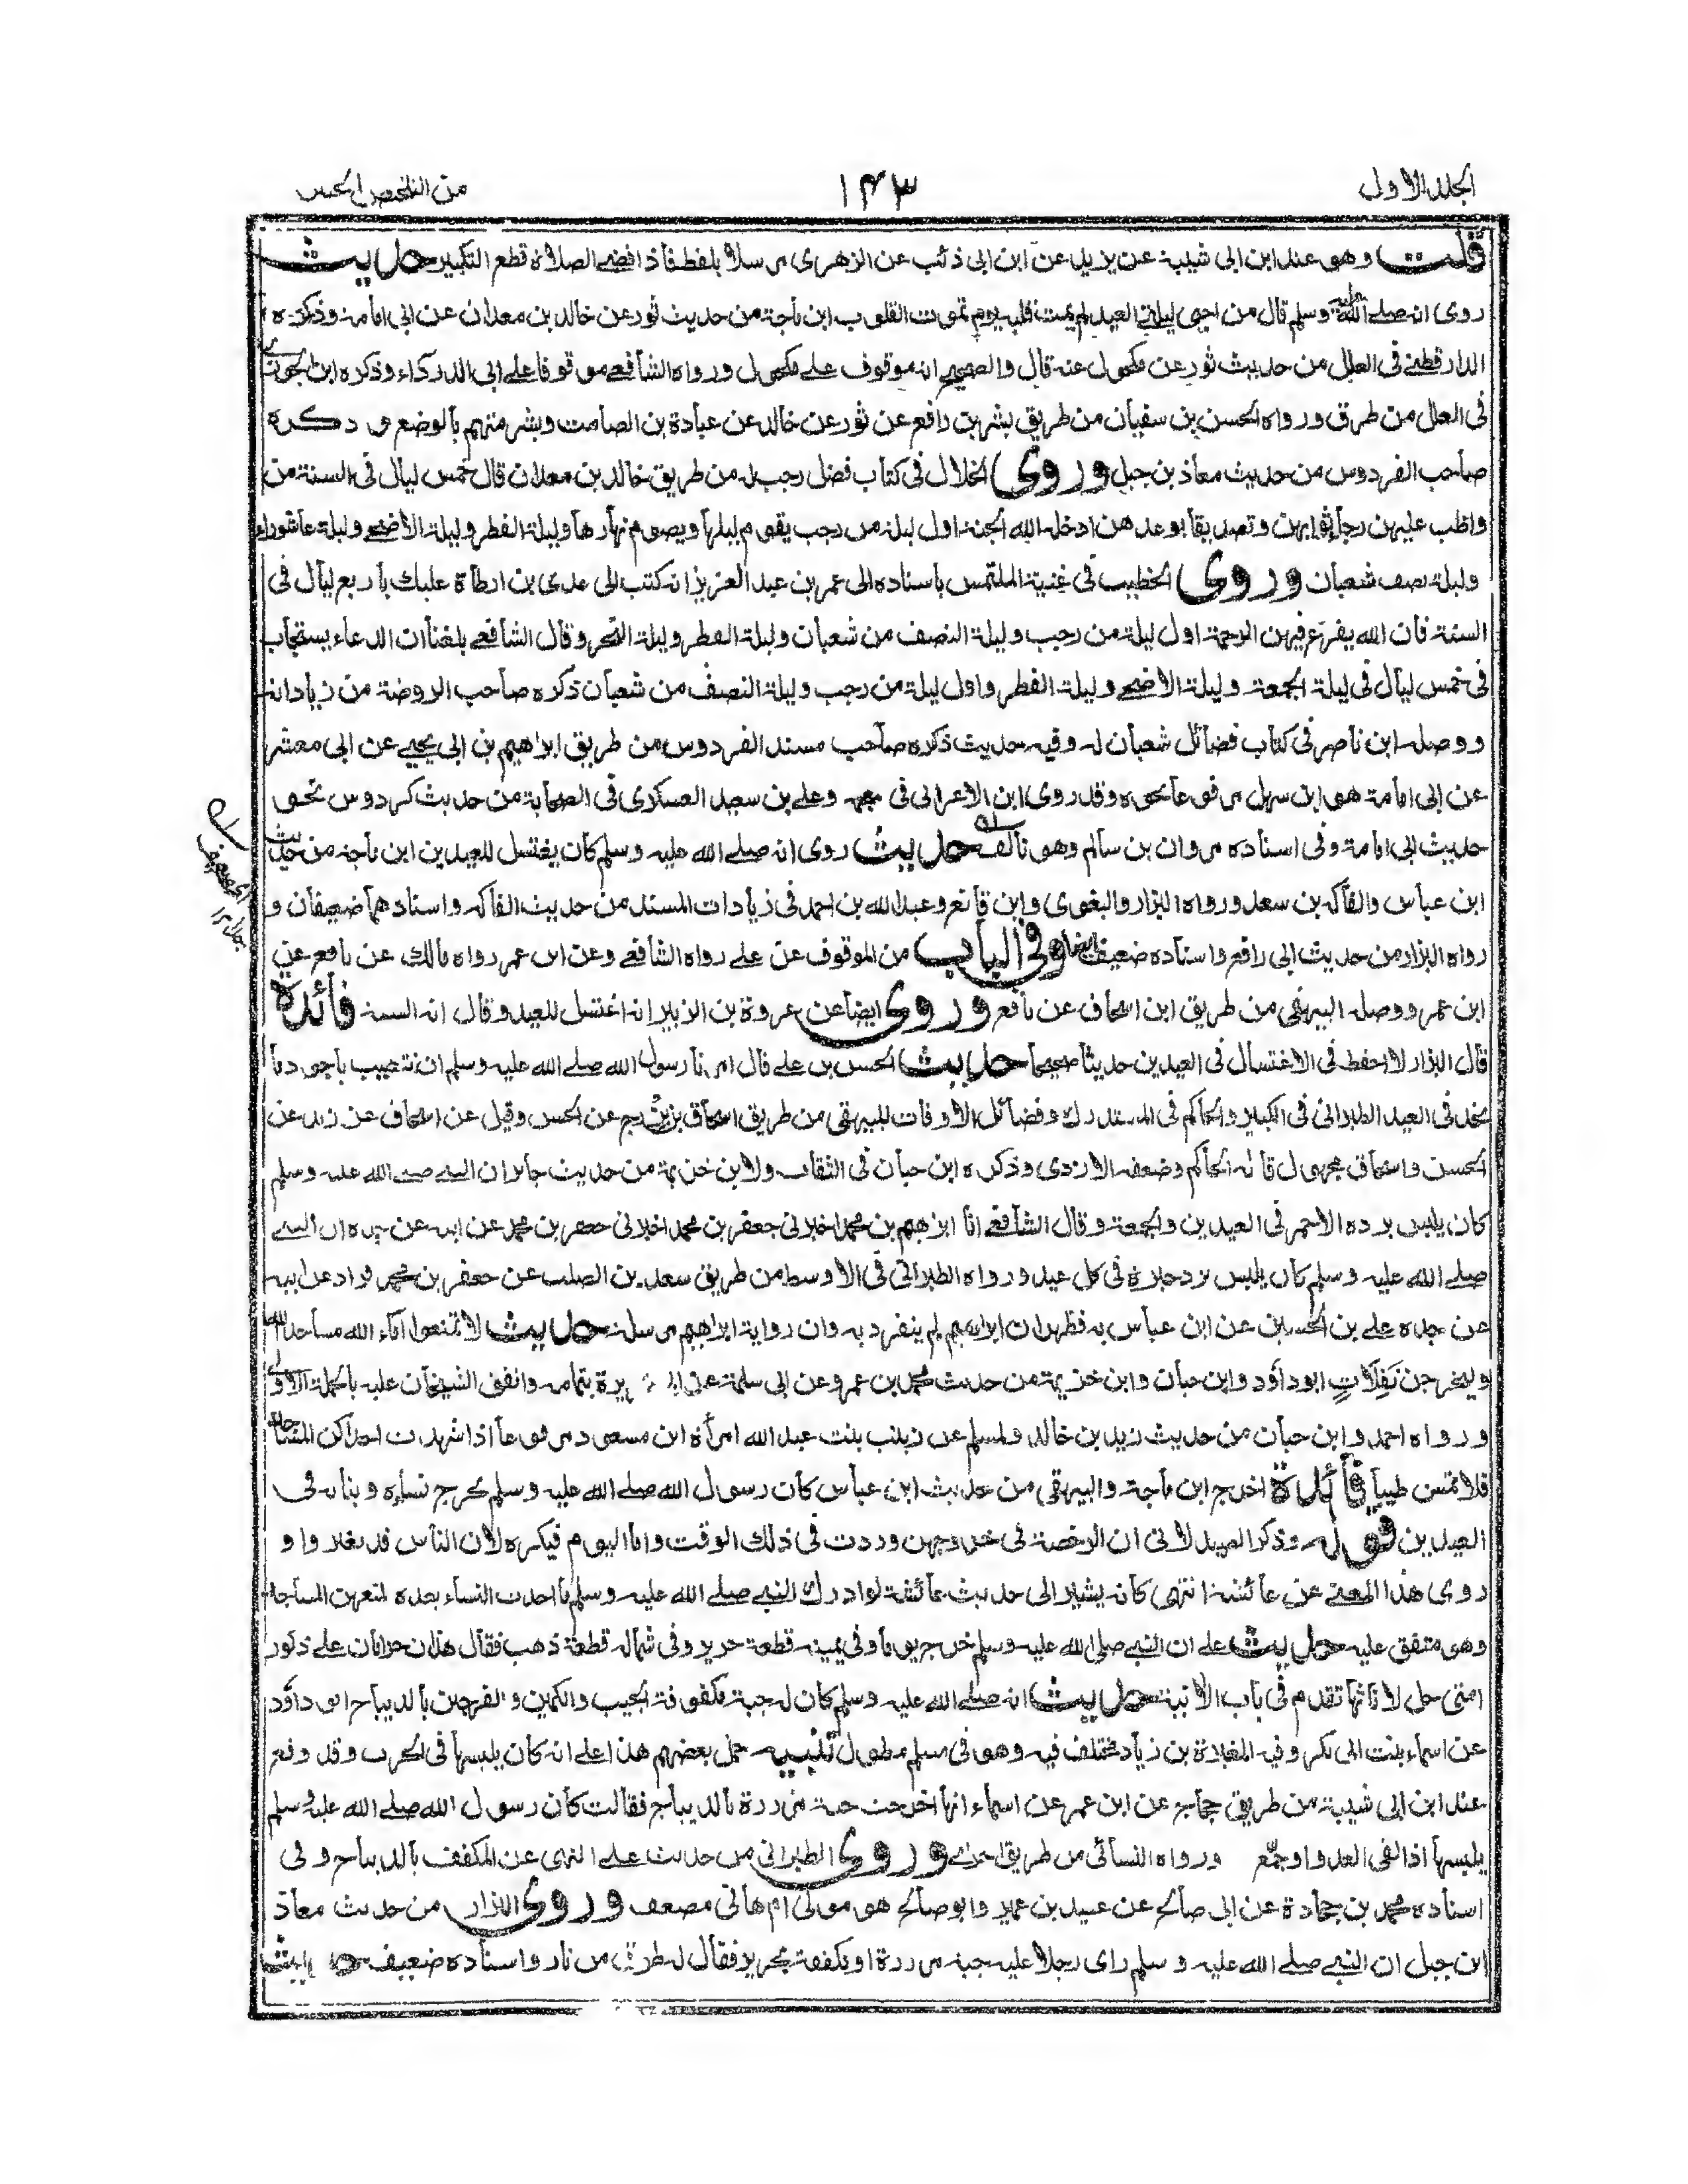 المجلد الاول
١٤٣
من التلخيص الحبير
قلت وهو عند ابن ابى شيبة عن يزيد عن ابن ابى ذئب عن الزهرى مرسلا بلفظ فاذا قضى الصلاة قطع التكبير حديث
روى انه صلى الله عليه وسلم قال من احيى ليلتى العيد لم يمت قلبه يوم تموت القلوب ابن ماجة من حديث ثور عن خالد بن معدان عن ابى امامة وذكره
الدارقطنى فى العلل من حديث ثور عن مكحول عنه قال والصحيح انه موقوف على مكحول ورواه الشافعى موقوفا على ابى الدرداء وذكره ابن الجوزى
فى العلل من طرق ورواه الحسن بن سفيان من طريق بشر بن رافع عن ثور عن خالد عن عبادة بن الصامت وبشر متهم بالوضع و ذكره
صاحب الفردوس من حديث معاذ بن جبل وروى الخلال فى كتاب فضل رجب له من طريق خالد بن معدان قال خمس ليال فى السنة من
واظب عليهن رجاء ثوابهن وتصديقا بوعدهن ادخله الله الجنة اول ليلة من رجب يقوم ليلها ويصوم نهارها وليلة الفطر وليلة الاضحى وليلة عاشوراء
وليلة نصف شعبان وروى الخطيب فى غنية الملتمس باسناده الى عمر بن عبد العزيز انه كتب الى عدى بن ارطاة عليك باربع ليال فى
السنة فان الله يفرغ فيهن الرحمة اول ليلة من رجب وليلة النصف من شعبان وليلة الفطر وليلة النحر وقال الشافعى بلغنا ان الدعاء يستجاب
فى خمس ليال فى ليلة الجمعة وليلة الاضحى وليلة الفطر واول ليلة من رجب وليلة النصف من شعبان ذكره صاحب الروضة من زياداته
ووصله ابن ناصر فى كتاب فضائل شعبان له وفيه حديث ذكره صاحب مسند الفردوس من طريق ابراهيم بن ابى يحيى عن ابى معشر
عن ابى امامة هو ابن سهل مرفوعا نحوه وقد روى ابن الاعرابى فى معجمه وعلى بن سعيد العسكرى فى الصحابة من حديث كردوس نحو
حديث ابى امامة وفى اسناده مروان بن سالم وهو تالف حديث روى انه صلى الله عليه وسلم كان يغتسل للعيدين ابن ماجة من حديث
ابن عباس والفاكه بن سعد ورواه البزار والبغوى وابن قانع وعبد الله بن احمد فى زيادات المسند من حديث الفاكه واسنادهما ضعيفان و
رواه البزار من حديث ابى رافع واسناده ضعيف ايضا وفى الباب من الموقوف عن على رواه الشافعى وعن ابن عمر رواه مالك عن نافع عن
ابن عمر ووصله البيهقى من طريق ابن اسحاق عن نافع وروى ايضا عن عروة بن الزبير انه اغتسل للعيد وقال انه السنة فائدة
قال البزار لا احفظ فى الاغتسال فى العيدين حديثا صحيحا حديث الحسن بن على قال امرنا رسول الله صلى الله عليه وسلم ان نتطيب باجود ما
نجد فى العيد الطبرانى فى الكبير والحاكم فى المستدرك وفضائل الاوقات للبيهقى من طريق اسحاق بن بزرج عن الحسن وقيل عن اسحاق عن زيد عن
الحسن واسحاق مجهول قاله الحاكم وضعفه الازدى وذكره ابن حبان فى الثقات ولابن خزيمة من حديث جابر ان النبى صلى الله عليه وسلم
كان يلبس برده الاحمر فى العيدين والجمعة وقال الشافعى انا ابراهيم بن محمد اخبرنى جعفر بن محمد عن ابيه عن جده ان النبى
صلى الله عليه وسلم كان يلبس برد حبرة فى كل عيد ورواه الطبرانى فى الاوسط من طريق سعد بن الصلت عن جعفر بن محمد فزاد عن ابيه
عن جده على بن الحسين عن ابن عباس به فظهر ان ابراهيم لم ينفرد به وان رواية ابراهيم مرسلة حديث لا تمنعوا اماء الله مساجد الله
وليخرجن تفلات ابو داود وابن حبان وابن خزيمة من حديث محمد بن عمرو عن ابى سلمة عن ابى هريرة بتمامه واتفق الشيخان عليه بالجملة الاولى
ورواه احمد وابن حبان من حديث زيد بن خالد ولمسلم عن زينب بنت عبد الله امرأة ابن مسعود مرفوعا اذا شهدت احداكن المساجد
فلا تمس طيبا فائدة اخرج ابن ماجة والبيهقى من حديث ابن عباس كان رسول الله صلى الله عليه وسلم يخرج نساءه وبناته فى
العيدين قوله وذكر الصيدلانى ان الرخصة فى خروجهن وردت فى ذلك الوقت واما اليوم فيكره لان الناس قد تغيروا و
روى هذا المعنى عن عائشة انتهى كانه يشير الى حديث عائشة لو ادرك النبى صلى الله عليه وسلم ما احدث النساء بعده لمنعهن المساجد
وهو متفق عليه حديث على ان النبى صلى الله عليه وسلم خرج يوما وفى يمينه قطعة حرير وفى شماله قطعة ذهب فقال هذان حرامان على ذكور
امتى حل لاناثها تقدم فى باب الآنية حديث انه صلى الله عليه وسلم كان له جبة مكفوفة الجيب والكمين والفرجين بالديباج ابو داود
عن اسماء بنت ابى بكر وفيه المغيرة بن زياد مختلف فيه وهو فى مسلم مطول تنبيه حمل بعضهم هذا على انه كان يلبسها فى الحرب وقد وقع
عند ابن ابى شيبة من طريق حجاج عن ابن عمر عن اسماء انها اخرجت جبة مزررة بالديباج فقالت كان رسول الله صلى الله عليه وسلم
يلبسها اذا لقى العدو او جمع ورواه النسائى من طريق وروى الطبرانى من حديث على النهى عن المكفف بالديباج وفى
اسناده محمد بن جحادة عن ابى صالح عن عبيد بن عمير وابو صالح هو مولى ام هانى مضعف وروى البزار من حديث معاذ
ابن جبل ان النبى صلى الله عليه وسلم راى رجلا عليه جبة مزررة او مكففة بحرير فقال له طوق من نار واسناده ضعيف حديث